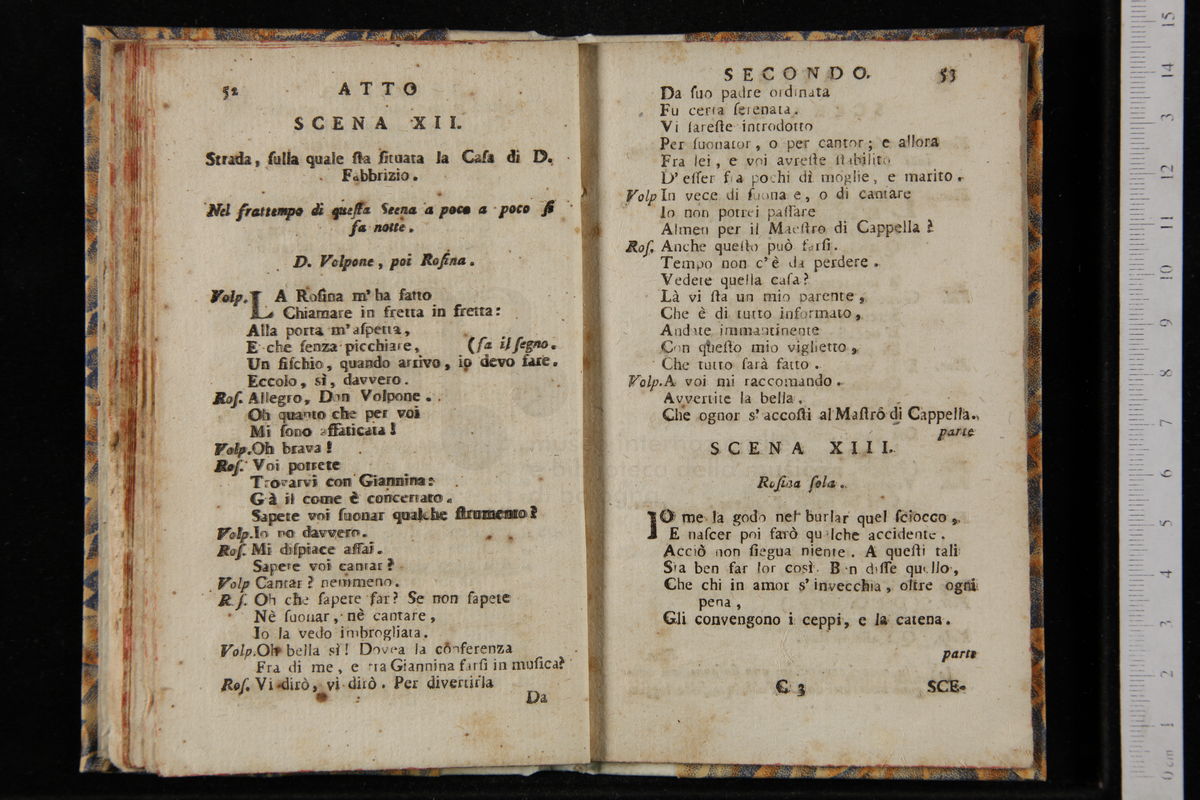 52 ATTO
SCENA XII.
Strada, ſulla quale ſta ſituata la Caſa di D.
Fabbrizio.
Nel frattempo di queſta Scena a poco a poco ſi
fa notte.
D. Volpone, poi Roſina.
Volp. LA Roſina m'ha fatto
Chiamare in fretta in fretta:
Alla porta m'aſpetta,
E che ſenza picchiare, (fa il ſegno.
Un fiſchio, quando arrivo, io devo fare.
Eccolo, sì, davvero.
Roſ. Allegro, Don Volpone.
Oh quanto che per voi
Mi ſono affaticata!
Volp. Oh brava!
Roſ. Voi potrete
Trovarvi con Giannina:
Già il come è concertato.
Sapete voi ſuonar qualche ſtrumento?
Volp. Io no davvero.
Roſ. Mi diſpiace aſſai.
Sapete voi cantar?
Volp Cantar? nemmeno.
Roſ. Oh che ſapete far? Se non ſapete
Nè ſuonar, nè cantare,
Io la vedo imbrogliata.
Volp. Oh bella sì! Dovea la conferenza
Fra di me, e tra Giannina farſi in muſica?
Roſ. Vi dirò, vi dirò. Per divertirla
Da
SECONDO. 53
Da ſuo padre ordinata
Fu certa ſerenata.
Vi ſareſte introdotto
Per ſuonator, o per cantor; e allora
Fra lei, e voi avreſte ſtabilito
D'eſſer fra pochi dì moglie, e marito.
Volp In vece di ſuonare, o di cantare
Io non potrei paſſare
Almen per il Maeſtro di Cappella?
Roſ. Anche queſto può farſi.
Tempo non c'è da perdere.
Vedete quella caſa?
Là vi ſta un mio parente,
Che è di tutto informato,
Andate immantinente
Con queſto mio viglietto,
Che tutto ſarà fatto.
Volp. A voi mi raccomando.
Avvertite la bella,
Che ognor s'accoſti al Maſtrô di Cappella.
parte
SCENA XIII.
Roſina ſola.
IO me la godo nel burlar quel ſciocco,
E naſcer poi farò qualche accidente.
Acciò non ſiegua niente. A queſti tali
Sta ben far lor così. Ben diſſe quello,
Che chi in amor s'invecchia, oltre ogni
pena,
Gli convengono i ceppi, e la catena.
parte
C 3 SCE-
0 cm 1 2 3 4 5 6 7 8 9 10 11 12 13 14 15